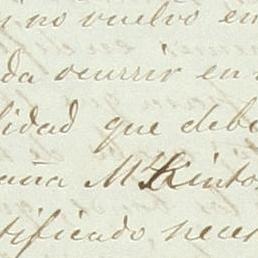 no vuelvo en
da ocurrir en
lidad que debe
aña McKinto
tificado neces